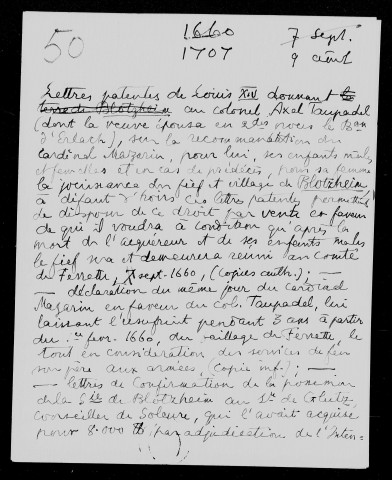 50
1660 7 Sept.
1707 9 août
Lettres patentes de Louis XIV donnant la
terre de Blotzheim au colonel Axel Taupadel
(dont la veuve épousa en 2des noces le Bon
d'Erlach), sur la recommandation du
cardinal Mazarin, pour lui, ses enfants mâles
et femelles et en cas de prédécès, pour sa femme
la jouissance du fief et village de Blotzheim
à défaut d'hoirs ces lettres patentes permettent
de disposer de ce droit par vente en faveur
de qui il voudra à condition qu'après la
mort de l'acquéreur et de ses enfants mâles
le fief sera et demeurera réuni au comté
de Ferrette, 7 sept. 1660, (copies auth.) ; —
— déclaration du même jour du cardinal
Mazarin en faveur du Col. Taupadel, lui
laissant l'usufruit pendant 3 ans à partir
du 1er janv. 1660, du village de Ferrette, le
tout en considération des services de feu
son père aux armées, (copie inf.) ; —
— lettres de Confirmation de la possession
de la Sie de Blotzheim au Sr. de
conseiller de Soleure, qui l'avait acquise
pour 8.000 lb par adjudication de l'Inten=